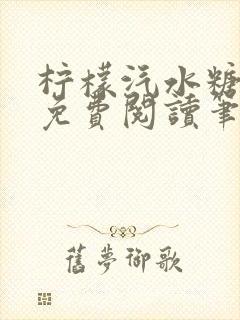 柠檬汽水糖
免費閱讀筆
舊夢御歌